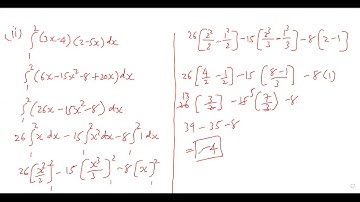 (ii) ∫₁² (3x-4)(2-5x) dx
∫₁² (6x-15x²-8+20x) dx
∫₁² (26x-15x²-8) dx
26 ∫₁² x dx - 15 ∫₁² x² dx - 8 ∫₁² 1 dx
26 [x²/2]₁² - 15 [x³/3]₁² - 8 [x]₁²
26 [2²/2 - 1²/2] - 15 [2³/3 - 1³/3] - 8 [2-1]
26 [4/2 - 1/2] - 15 [8-1/3] - 8(1)
13 26 (3/2) - 15 5 (7/3) - 8
39 - 35 - 8
= -4